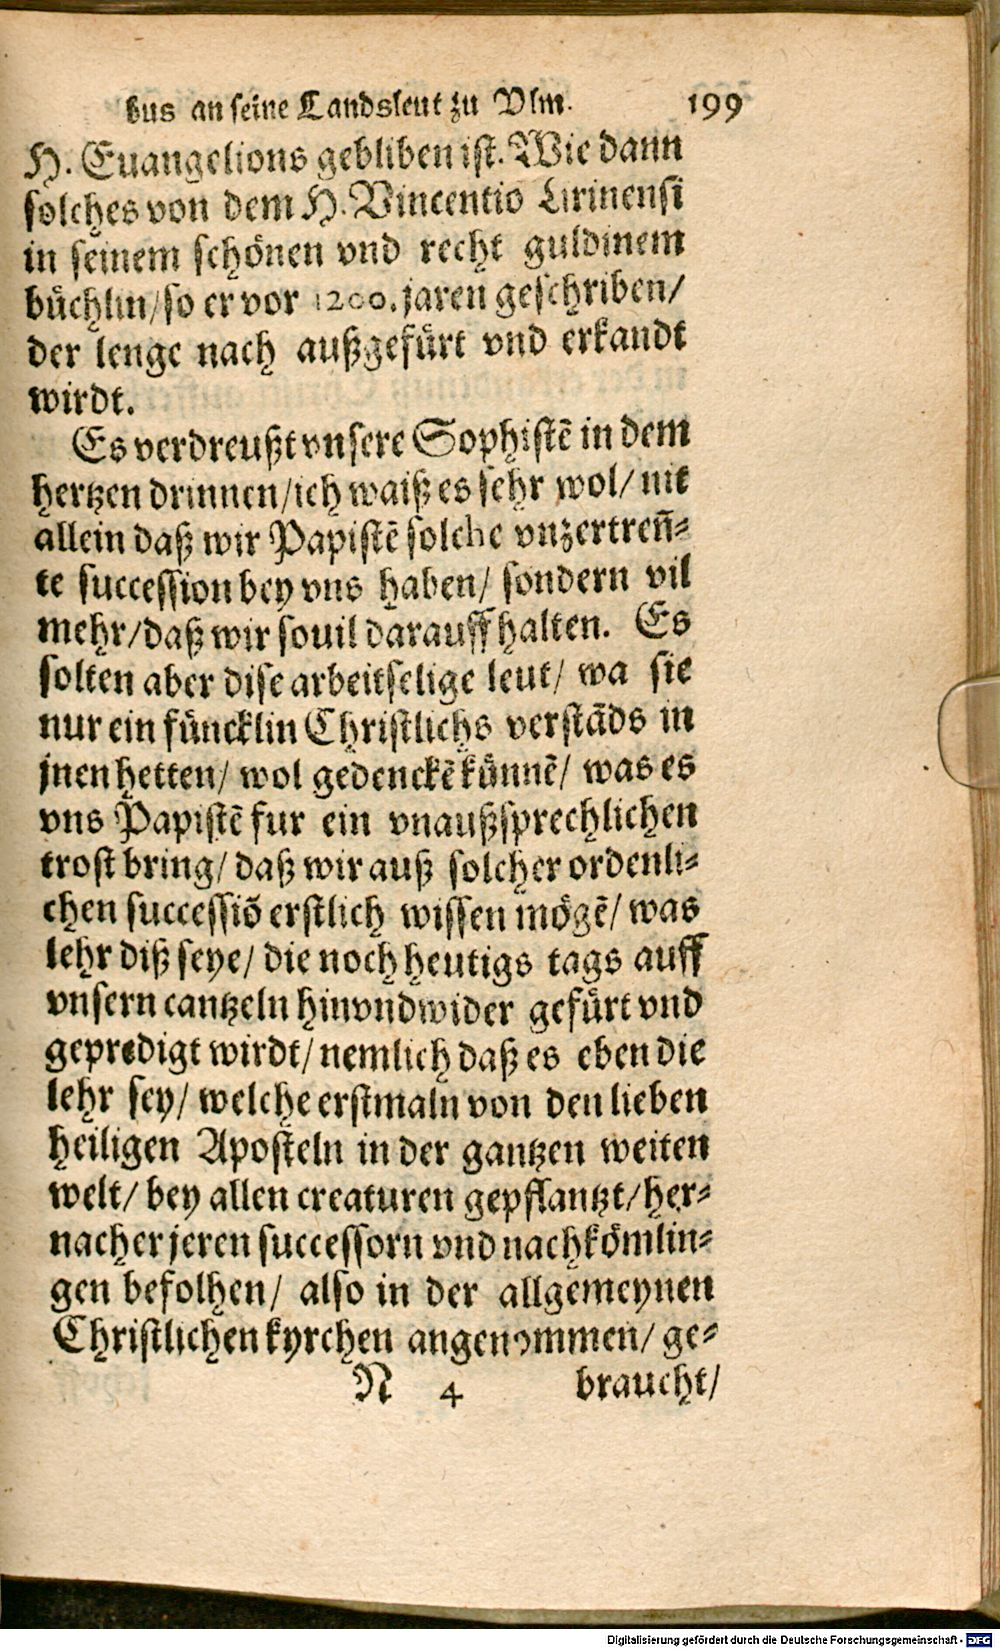 bus an seine Landsleut zu Vlm. 199
H. Euangelions gebliben ist. Wie dann
solches von dem H. Vincentio Lirinensi
in seinem schönen vnd recht guldinem
büchlin/ so er vor 1200. jaren geschriben/
der lenge nach außgefürt vnd erkandt
wirdt.
Es verdreußt vnsere Sophistẽ in dem
hertzen drinnen/ ich waiß es sehr wol/ nit
allein daß wir Papistẽ solche vnzertreñ⸗
te succession bey vns haben/ sondern vil
mehr/ daß wir souil darauff halten. Es
solten aber dise arbeitselige leut/ wa sie
nur ein füncklin Christlichs verstãds in
jnen hetten/ wol gedenckẽ künnẽ/ was es
vns Papistẽ fur ein vnaußsprechlichen
trost bring/ daß wir auß solcher ordenli⸗
chen successiõ erstlich wissen mögẽ/ was
lehr diß seye/ die noch heutigs tags auff
vnsern cantzeln hinvndwider gefürt vnd
gepredigt wirdt/ nemlich daß es eben die
lehr sey/ welche erstmaln von den lieben
heiligen Aposteln in der gantzen weiten
welt/ bey allen creaturen gepflantzt/ her⸗
nacher jeren successorn vnd nachkömlin⸗
gen befolhen/ also in der allgemeynen
Christlichen kyrchen angenommen/ ge⸗
N 4 braucht/
Digitalisierung gefördert durch die Deutsche Forschungsgemeinschaft - DFG